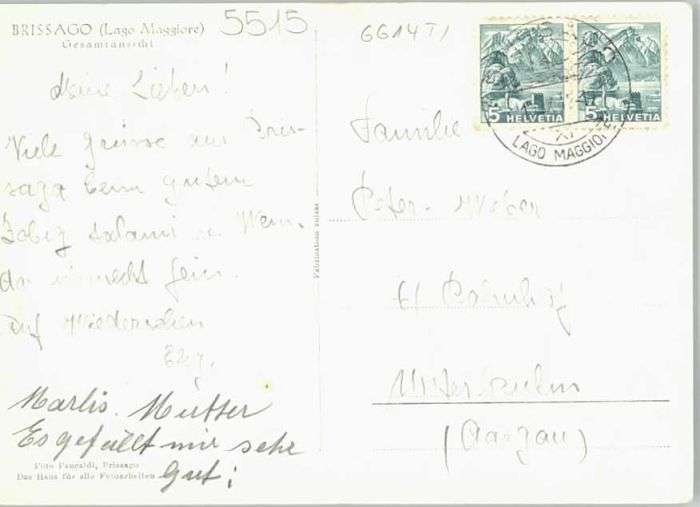 BRISSAGO (Lago Maggiore)
Gesamtansicht
5515
6614 T1
Meine Lieben!
Viele Grüsse aus Bris-
sago beim guten
Zobig Salami u. Wein.
Da ist recht fein.
auf Wiedersehen
Marlis. Mutter
Es gefällt mir sehr
Gut!
Foto Pancaldi, Brissago
Das Haus für alle Fotoarbeiten
Fabricazione svizzera
5 HELVETIA
5 HELVETIA
LAGO MAGGIO
Familie
Peter-Weber
Unterkulm
(Aargau)